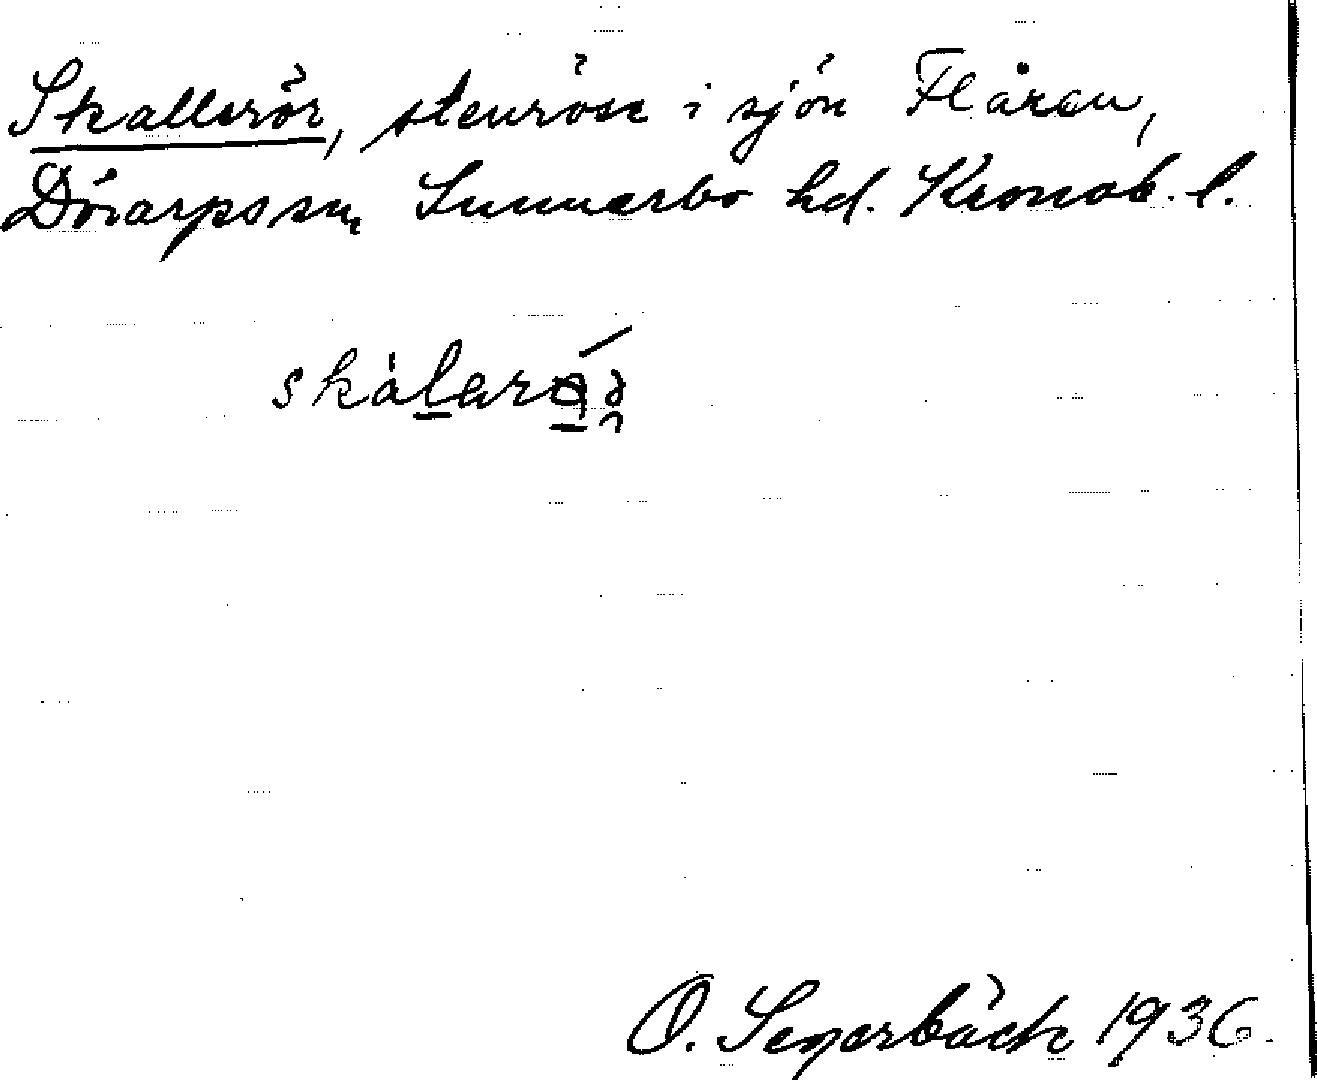 Skallerör, stenröse i sjön Flåren,
Dörarps sn, Sunnerbo hd. Kronob. l.
O. Segerbäck 1936.